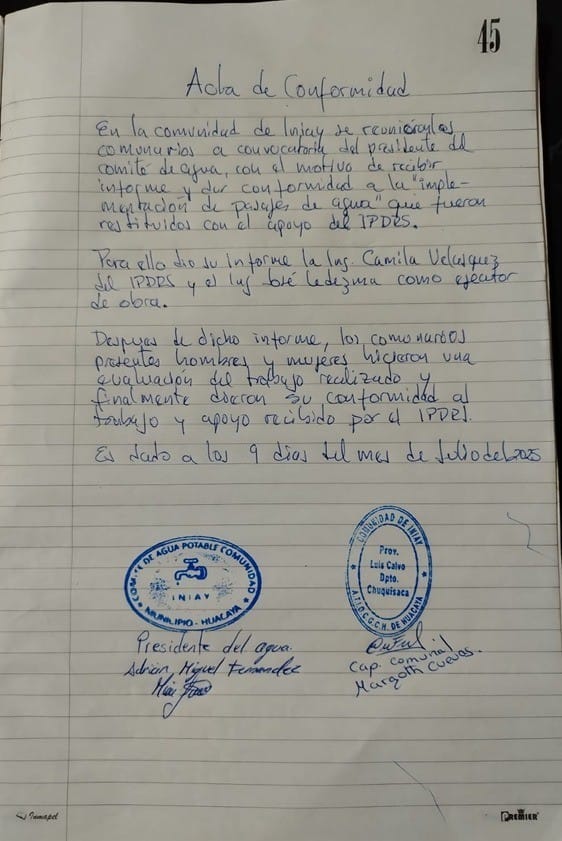 45
Acta de Conformidad
En la comunidad de Iniay se reunieron los
comunarios a convocatoria del presidente del
comité de agua, con el motivo de recibir
informe y dar conformidad a la "imple-
mentación de pasajes de agua" que fueron
restituidos con el apoyo del IPDRS.
Para ello dio su informe la Ing. Camila Velasquez
del IPDRS y el Ing José Ledezma como ejecutor
de obra.
Despues de dicho informe, los comunarios
presentes hombres y mujeres hicieron una
evaluación del trabajo realizado y
finalmente dieron su conformidad al
trabajo y apoyo recibido por el IPDRS.
Es dado a los 9 dias del mes de Julio del 2025
COMITE DE AGUA POTABLE COMUNIDAD
INIAY
MUNICIPIO - HUACAYA
COMUNIDAD DE INIAY
Prov.
Luis Calvo
Dpto.
Chuquisaca
A.T.I.O.C.G.CH. DE HUACAYA
Presidente del agua.
Adrián, Miguel Fernandez
Cap. comunal
Margoth Cuevas.
Inmapel
PREMIER